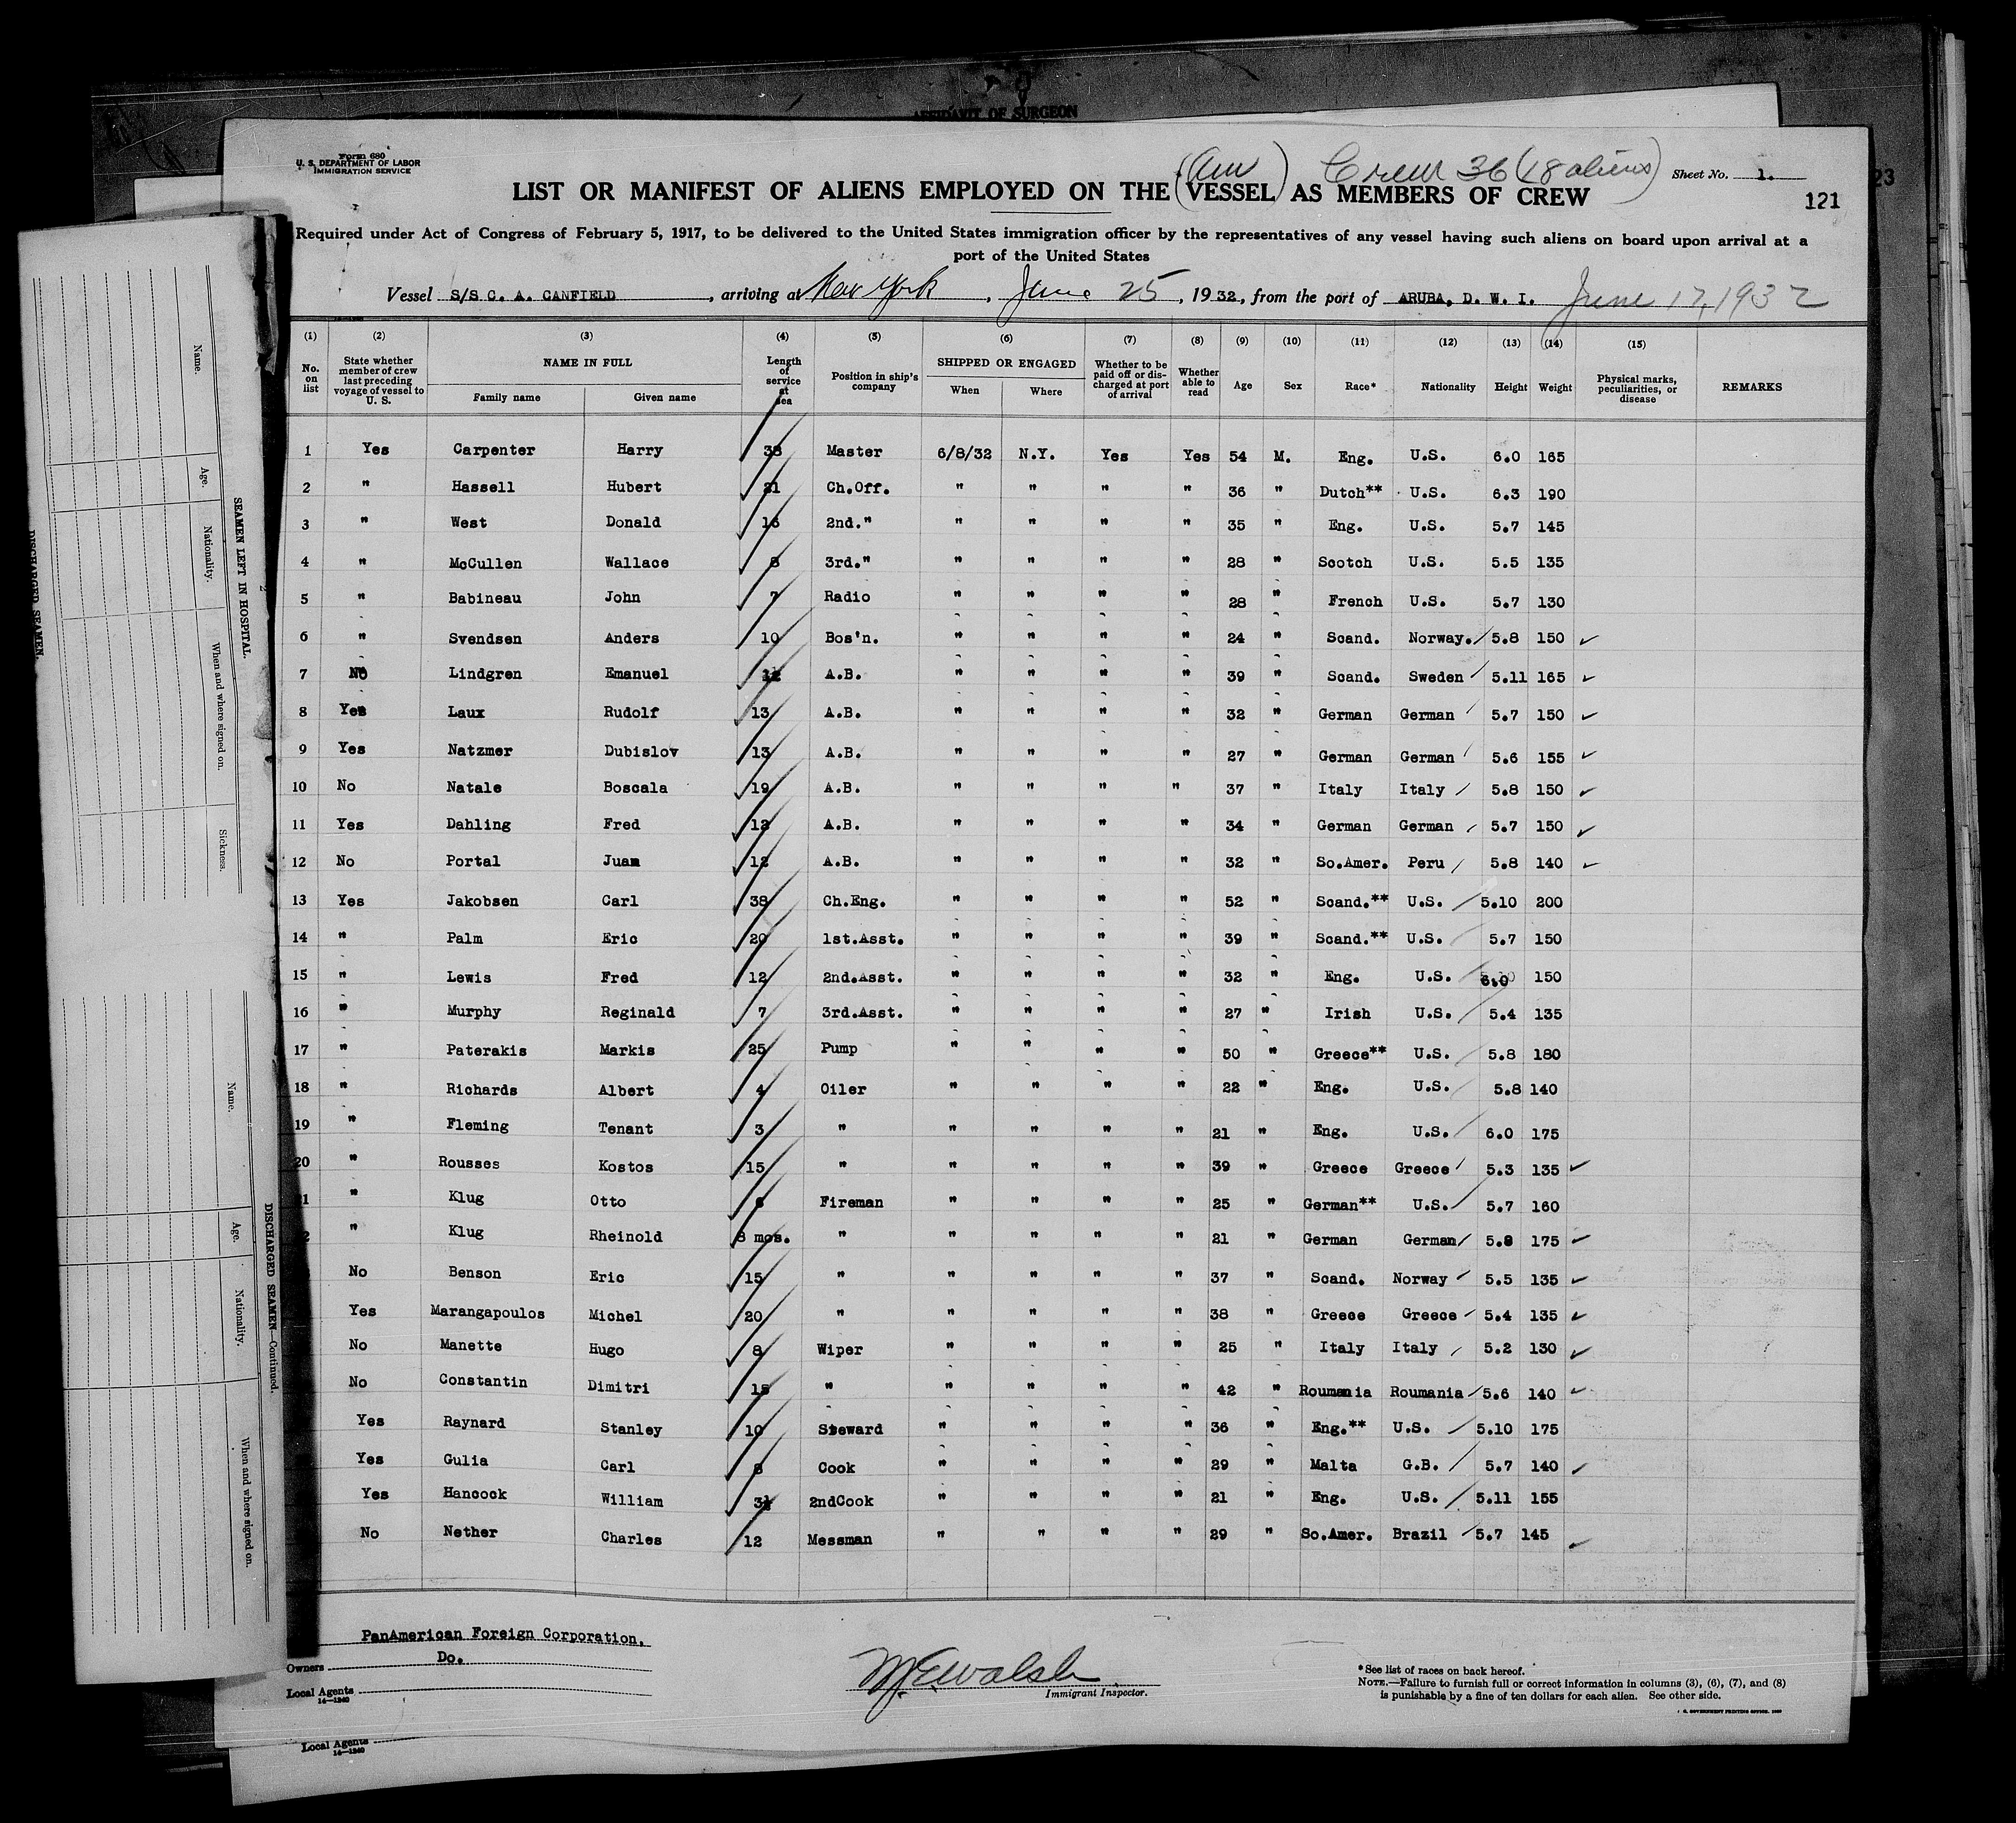 AFFIDAVIT OF SURGEON
Form 680
U. S. DEPARTMENT OF LABOR
IMMIGRATION SERVICE
(Am) Crew 36 (18 aliens)
Sheet No. 1.
23
LIST OR MANIFEST OF ALIENS EMPLOYED ON THE VESSEL AS MEMBERS OF CREW
121
Required under Act of Congress of February 5, 1917, to be delivered to the United States immigration officer by the representatives of any vessel having such aliens on board upon arrival at a
port of the United States
Vessel S/S C. A. CANFIELD, arriving at New York, June 25, 1932, from the port of ARUBA, D. W. I. June 17, 1932
(1) (2) (3) (4) (5) (6) (7) (8) (9) (10) (11) (12) (13) (14) (15)
No. on list State whether member of crew last preceding voyage of vessel to U. S. NAME IN FULL Length of service at sea Position in ship's company SHIPPED OR ENGAGED Whether to be paid off or discharged at port of arrival Whether able to read Age Sex Race* Nationality Height Weight Physical marks, peculiarities, or disease REMARKS
Family name Given name When Where
1 Yes Carpenter Harry 38 Master 6/8/32 N.Y. Yes Yes 54 M. Eng. U.S. 6.0 165
2 " Hassell Hubert 21 Ch.Off. " " " " 36 " Dutch** U.S. 6.3 190
3 " West Donald 16 2nd." " " " " 35 " Eng. U.S. 5.7 145
4 " McCullen Wallace 8 3rd." " " " " 28 " Scotch U.S. 5.5 135
5 " Babineau John 7 Radio " " " " 28 " French U.S. 5.7 130
6 " Svendsen Anders 10 Bos'n. " " " " 24 " Scand. Norway. 5.8 150 ✓
7 No Lindgren Emanuel A.B. " " " " 39 " Scand. Sweden 5.11 165 ✓
8 Yes Laux Rudolf 13 A.B. " " " " 32 " German German 5.7 150 ✓
9 Yes Natzmer Dubislov 13 A.B. " " " " 27 " German German 5.6 155 ✓
10 No Natale Boscala 19 A.B. " " " " 37 " Italy Italy 5.8 150 ✓
11 Yes Dahling Fred 12 A.B. " " " " 34 " German German 5.7 150 ✓
12 No Portal Juan 12 A.B. " " " " 32 " So.Amer. Peru 5.8 140 ✓
13 Yes Jakobsen Carl 38 Ch.Eng. " " " " 52 " Scand.** U.S. 5.10 200
14 " Palm Eric 20 1st.Asst. " " " " 39 " Scand.** U.S. 5.7 150
15 " Lewis Fred 12 2nd.Asst. " " " " 32 " Eng. U.S. 6.0 150
16 " Murphy Reginald 7 3rd.Asst. " " " " 27 " Irish U.S. 5.4 135
17 " Paterakis Markis 25 Pump " " " " 50 " Greece** U.S. 5.8 180
18 " Richards Albert 4 Oiler " " " " 22 " Eng. U.S. 5.8 140
19 " Fleming Tenant 3 " " " " " 21 " Eng. U.S. 6.0 175
20 " Rousses Kostos 15 " " " " " 39 " Greece Greece 5.3 135 ✓
1 " Klug Otto 6 Fireman " " " " 25 " German** U.S. 5.7 160
2 " Klug Rheinold 8 mos. " " " " " 21 " German German 5.8 175 ✓
No Benson Eric 15 " " " " " 37 " Scand. Norway 5.5 135 ✓
Yes Marangapoulos Michel 20 " " " " " 38 " Greece Greece 5.4 135 ✓
No Manette Hugo 8 Wiper " " " " 25 " Italy Italy 5.2 130 ✓
No Constantin Dimitri 15 " " " " " 42 " Roumania Roumania 5.6 140 ✓
Yes Raynard Stanley 10 Steward " " " " 36 " Eng.** U.S. 5.10 175
Yes Gulia Carl 8 Cook " " " " 29 " Malta G.B. 5.7 140 ✓
Yes Hancock William 3½ 2ndCook " " " " 21 " Eng. U.S. 5.11 155
No Nether Charles 12 Messman " " " " 29 " So.Amer. Brazil 5.7 145 ✓
PanAmerican Foreign Corporation.
Owners Do.
Local Agents
14—1240
M. E. Walsh
Immigrant Inspector.
* See list of races on back hereof.
NOTE.—Failure to furnish full or correct information in columns (3), (6), (7), and (8)
is punishable by a fine of ten dollars for each alien. See other side.
Local Agents
14—1240
Name.
Age.
Nationality.
When and where signed on.
Sickness.
SEAMEN LEFT IN HOSPITAL.
DISCHARGED SEAMEN.
Name.
Age.
Nationality.
When and where signed on.
DISCHARGED SEAMEN—Continued.